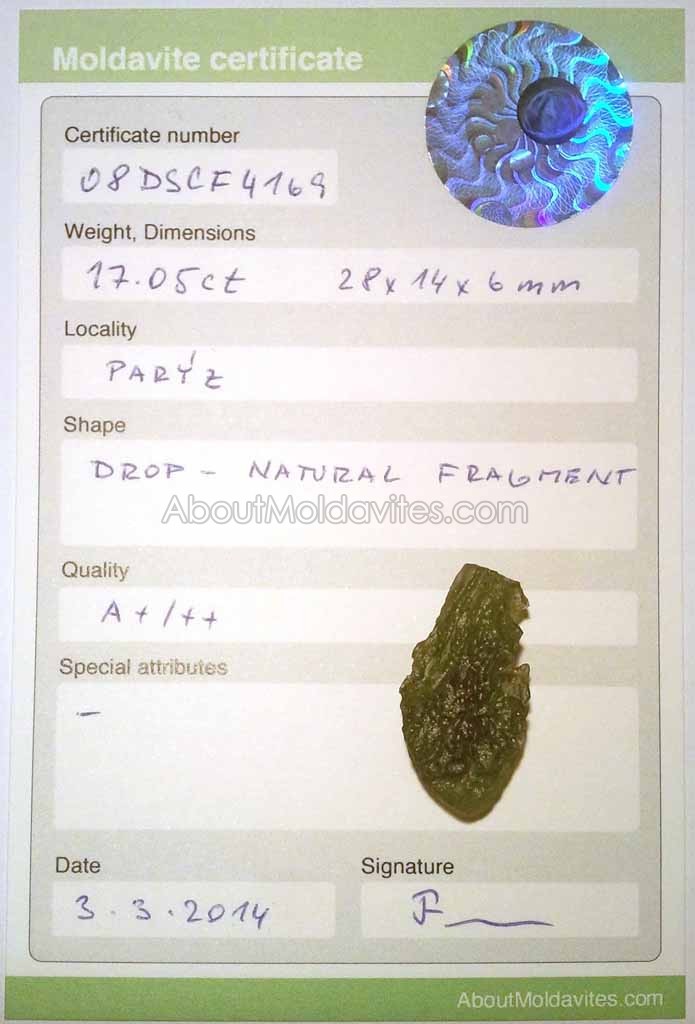 Moldavite certificate
Certificate number
08DSCF4169
Weight, Dimensions
17.05ct 28x14x6mm
Locality
PARÝZ
Shape
DROP - NATURAL FRAGMENT
AboutMoldavites.com
Quality
A+/++
Special attributes
-
Date
Signature
3.3.2014
AboutMoldavites.com